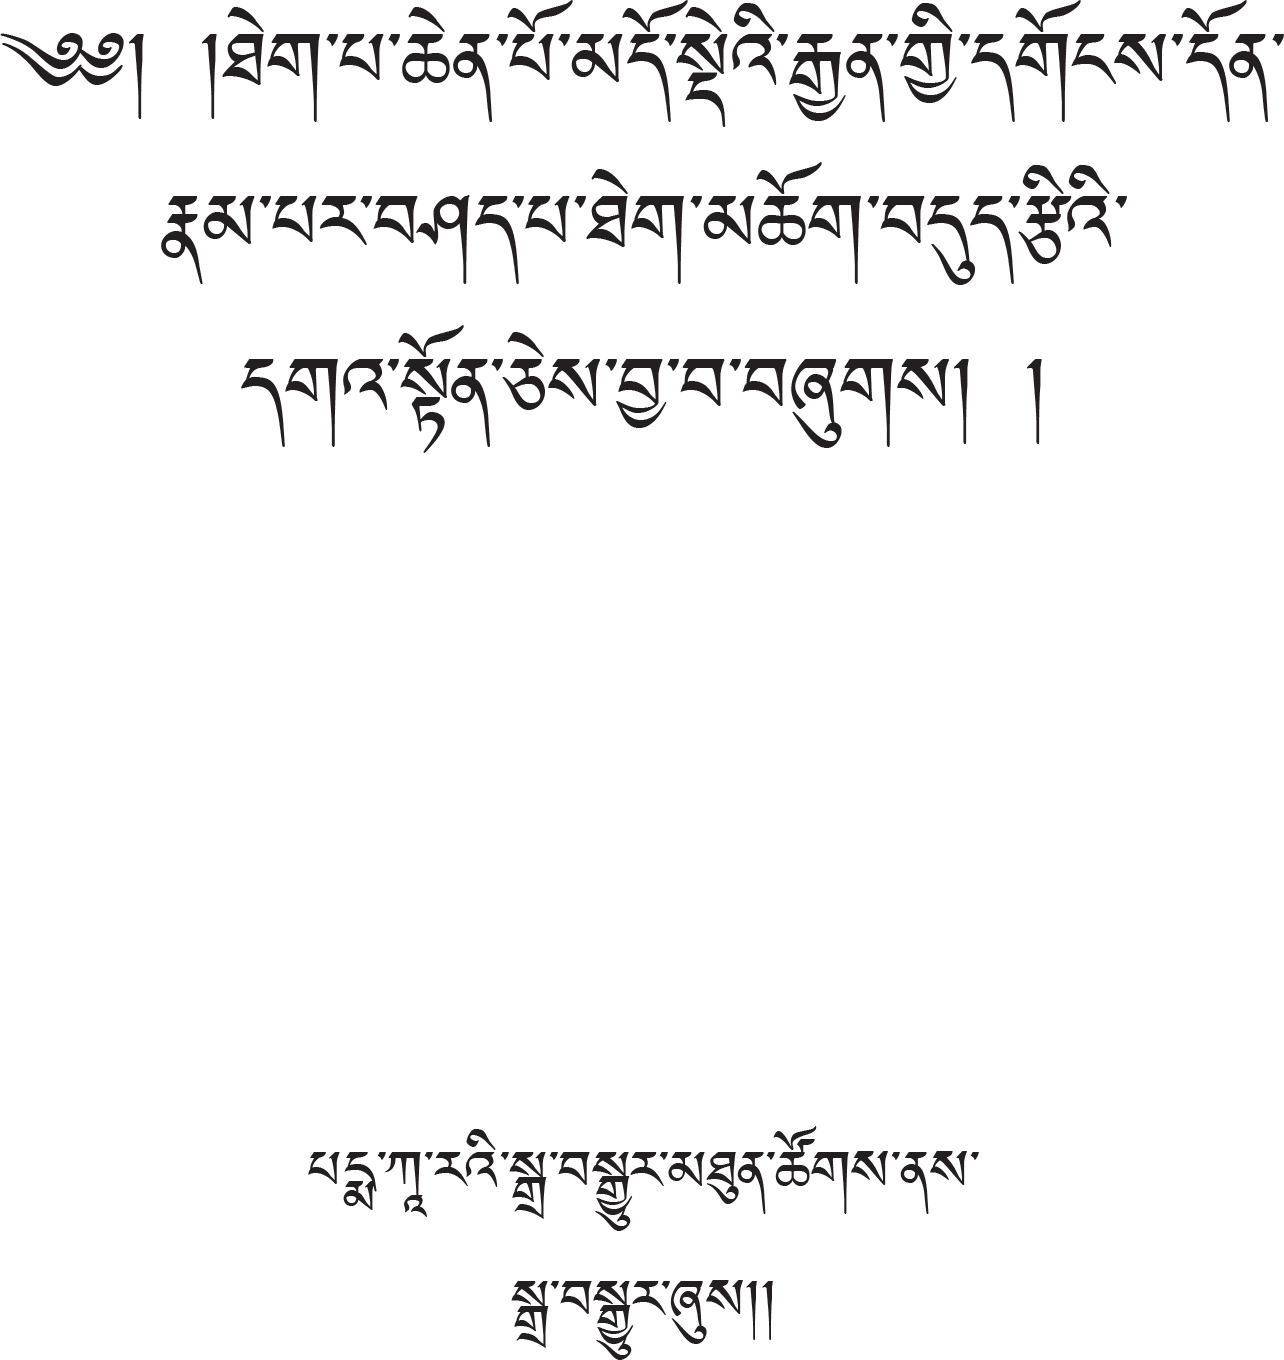 ༄༅། །ཐེག་པ་ཆེན་པོ་མདོ་སྡེའི་རྒྱན་གྱི་དགོངས་དོན་
རྣམ་པར་བཤད་པ་ཐེག་མཆོག་བདུད་རྩིའི་
དགའ་སྟོན་ཅེས་བྱ་བ་བཞུགས། །
པདྨ་ཀཱ་རའི་སྒྲ་བསྒྱུར་མཐུན་ཚོགས་ནས་
སྒྲ་བསྒྱུར་ཞུས།།